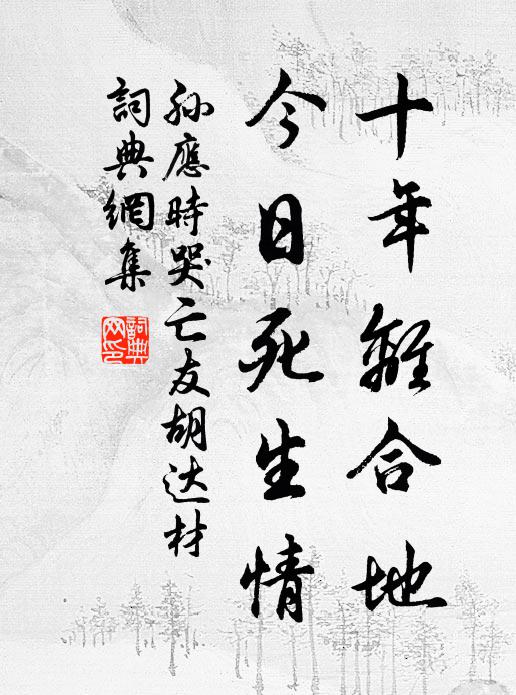 十年離合地
今日死生情
孫應時哭亡友胡达材
詞典網集
詞典
网印